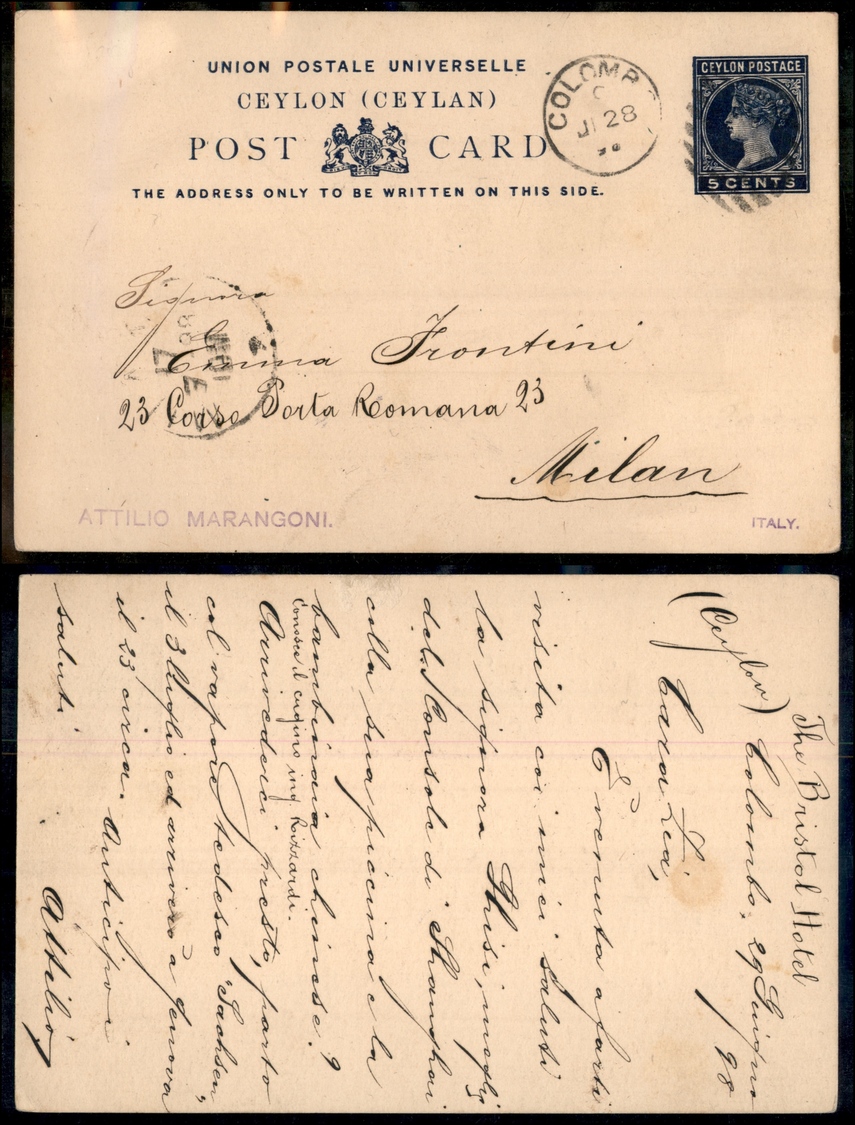 UNION POSTALE UNIVERSELLE
CEYLON (CEYLAN)
POST CARD
THE ADDRESS ONLY TO BE WRITTEN ON THIS SIDE.
COLOMB
C
28
CEYLON POSTAGE
5 CENTS
Signora
Emma Frontini
23 Corso Porta Romana 23
Milan
ATTILIO MARANGONI.
ITALY.
The Bristol Hotel
(Ceylon) Colombo, 29 Giugno 98
Cara Zia,
È venuta a farti
visita coi miei saluti
la signora Ghisi, moglie
del Console di Shanghai
colla sua piccina e la
bambinaia chinese?
Conosce il cugino ing Rizzardi.
Arrivederci presto, parto
col vapore tedesco "Sachsen"
il 3 luglio ed arriverò a Genova
il 23 circa. Anticipoti
saluti
Attilio